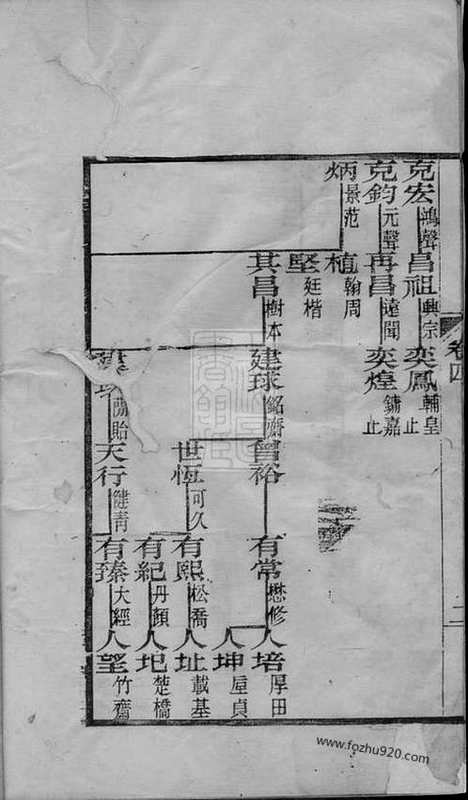 卷四
二
克宏 鴻聲 昌祖 興宗 奕鳳 輔皇 止
克鈞 元聲 再昌 遠聞 奕煌 鏞嘉 止
炳 丙景范 植 翰周
堅 廷楷
其昌 樹本 建球 銘齋 曾裕 有常 懋修 人培 厚田
人坤 屋貞
世恆 可久 有熙 松喬 人址 載基
有紀 丹顏 人圯 楚橋
貽 天行 健青 有臻 大經 人望 竹齋
www.fozhu920.com